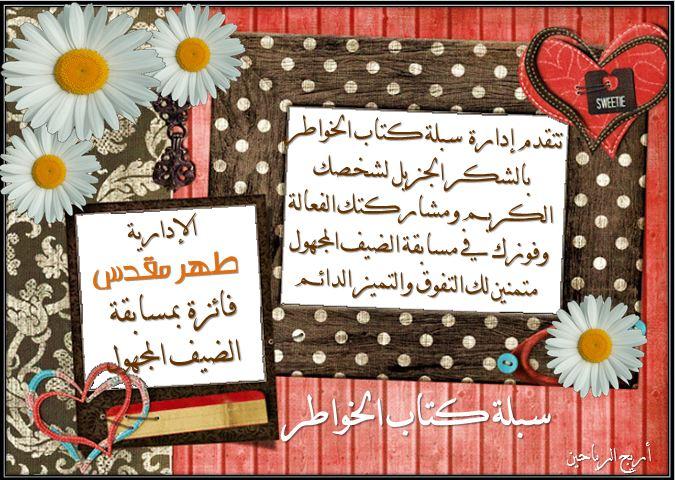 SWEETIE
تتقدم إدارة سبلة كتاب الخواطر
بالشكر الجزيل لشخصك
الكريم ومشاركتك الفعالة
وفوزك في مسابقة الضيف المجهول
متمنين لك التفوق والتميز الدائم
الإدارية
طهر مقدس
فائزة بمسابقة
الضيف المجهول
سبلة كتاب الخواطر
أريج الرياحين